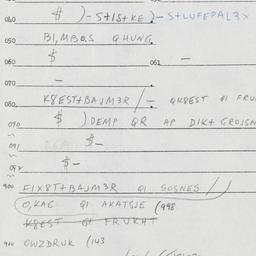 040 $ )-S+IS+KE )-S+LUFEPAL3X
050 BI,MBOS QHUNG
060 $ 061 -
070 -
080, K8EST+BAJM3R /- QK8EST 81 FRU
090 $ ) DEMP QR AP DIK+ GROJSN
091 $-
092 $-
900 FIX8T+BAJM3R 81 SOSNES /)
O,KAG 81 AKATSJE (998
K8EST 81 FRUKHT
910 OWZDRUK (143